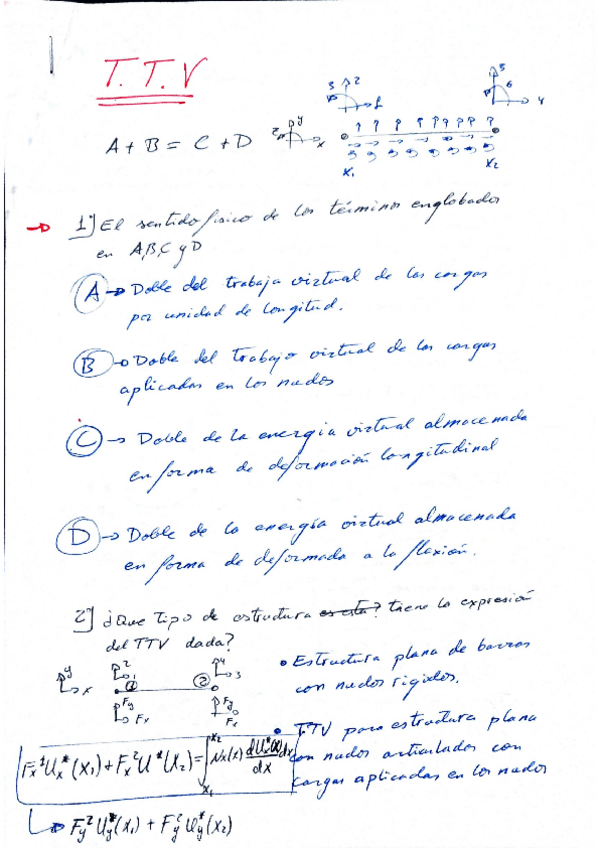 T.T.V
A + B = C + D
3 2 1
z y x
x₁ x₂
5 6 4
1º] El sentido físico de los términos englobados
en A,B,C y D
A → Doble del trabajo virtual de las cargas
por unidad de longitud.
B → Doble del trabajo virtual de las cargas
aplicadas en los nudos
C → Doble de la energía virtual almacenada
en forma de deformación longitudinal
D → Doble de la energía virtual almacenada
en forma de deformada a la flexión.
2º] ¿Que tipo de estructura tiene la expresión
del TTV dada?
y x 2 1 ① ② 4 3
Fy Fx Fy Fx
• Estructura plana de barras
con nudos rígidos.
• TTV para estructura plana
con nudos articulados con
cargas aplicadas en los nudos
Fx¹Ux*(x₁) + Fx²U*(x₂) = ∫ₓ₁ˣ² Nx(x) dUx*(x)/dx dx
Fy²Uy*(x₁) + Fy²Uy*(x₂)